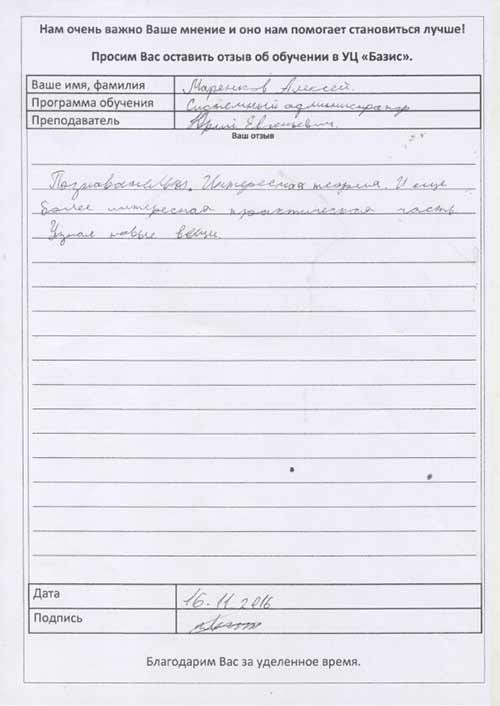 Нам очень важно Ваше мнение и оно нам помогает становиться лучше!
Просим Вас оставить отзыв об обучении в УЦ «Базис».
Ваше имя, фамилия Маренков Алексей.
Программа обучения Системный администратор
Преподаватель Юрий Евгеньевич.
Ваш отзыв
Познавательно. Интересная теория. И еще
более интересная практическая часть
Узнал новые вещи.
Дата 16.11.2016
Подпись
Благодарим Вас за уделенное время.